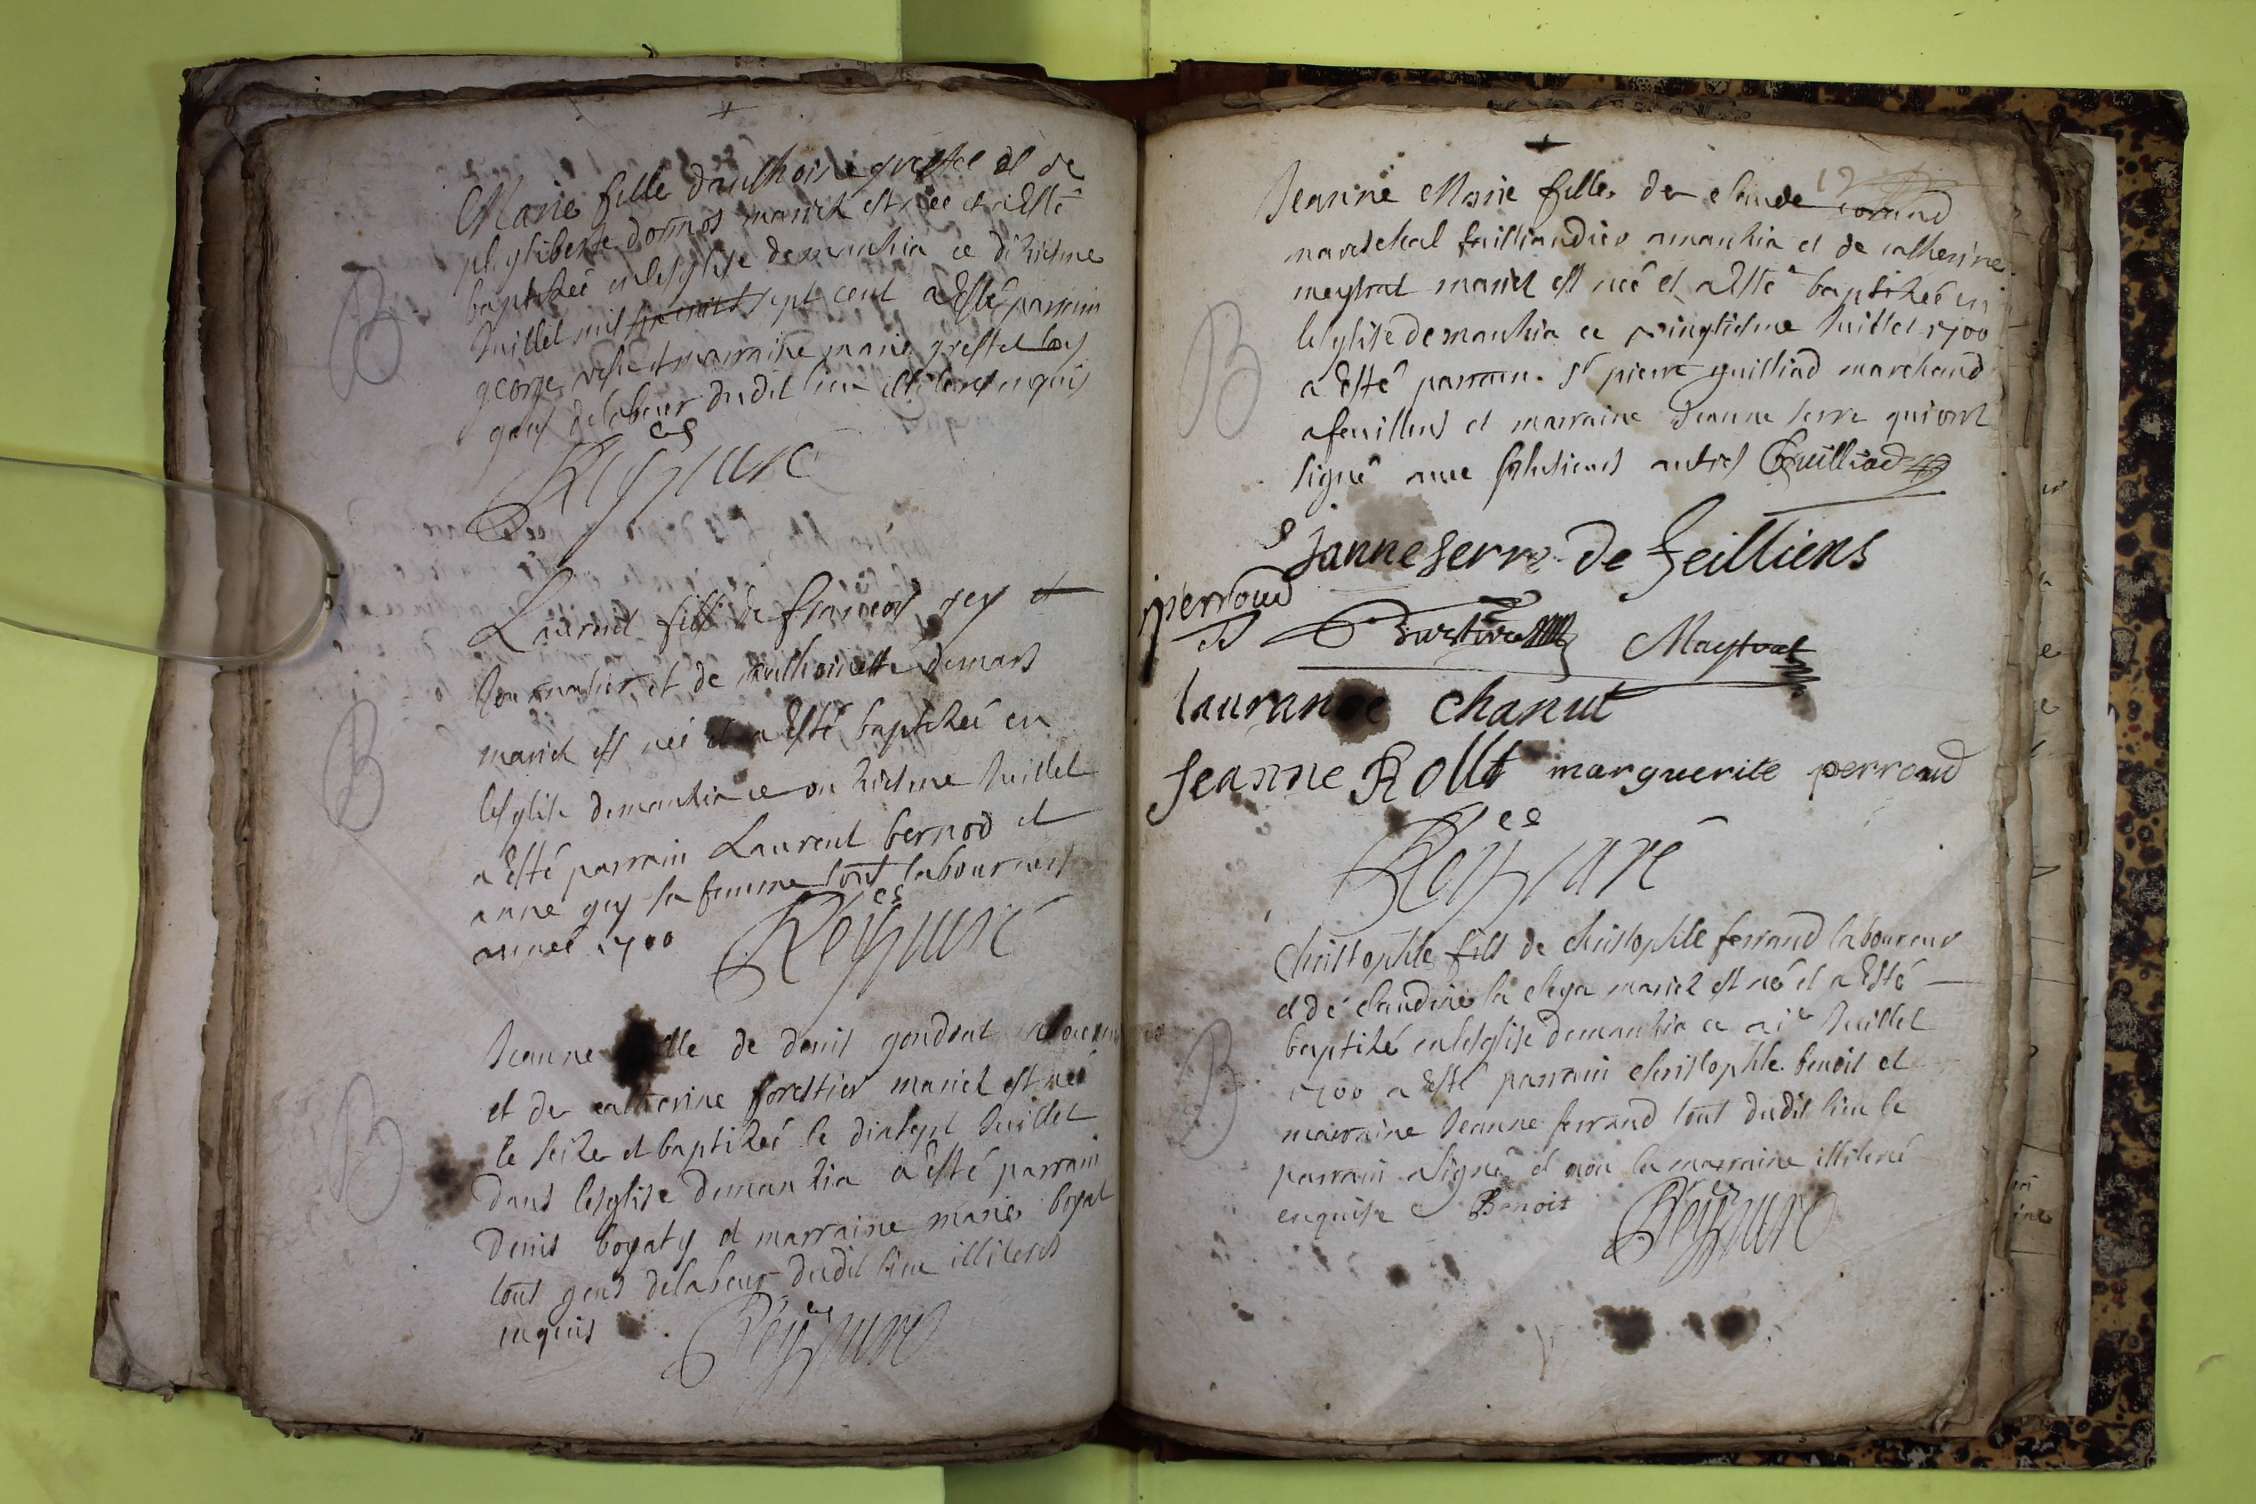 B
Marie fille d'anthoine grestel et de
philiberte dormos mariez est née et a Esté
baptizée en lesglise de manzia ce dixiesme
Juillet mil sept cent a Esté parrain
george et marraine marie grestel tous
gens de labeur dudit lieu illiterez enquis
Rey curé
B
Laurent fils de francois rey et
Journalier et de anthoinette demars
mariez est né et a Esté baptizé en
lesglise de manzia ce onziesme Juillet
a Esté parrain Laurent bernod et
anne guy sa femme tout laboureurs
année 1700
Rey curé
B
Jeanne fille de denis gondrat laboureur
et de catherine forestier mariez est née
le seize et baptizée le dixsept Juillet
dans lesglise de manzia a Esté parrain
denis boyaty et marraine marie boyat
tout gens de labeur dudit lieu illiterez
enquis
Rey curé
12
B
Jeanne Marie fille de claude corand
mareschal tailliandier a manzia et de catherine
meytrat mariez est née et a Esté baptizée en
lesglise de manzia ce vingtiesme Juillet 1700
a Esté parrain sr pierre guilliad marchand
a feuillens et marraine Jeanne serre qui ont
signé avec plusieurs autres Guilliad
janne serre de feilliens
perroud
Maytrat
laurance chanut
Jeanne Rollet marguerite perroud
Rey curé
B
Christophle fils de christophle ferrand laboureur
et de claudine la cleya mariez est né et a Esté
baptizé en lesglise de manzia ce Juillet
1700 a Esté parrain christophle benoit et
marraine Jeanne ferrand tout dudit lieu le
parrain a signé et non la marraine illiteré
enquise Benoit
Rey curé